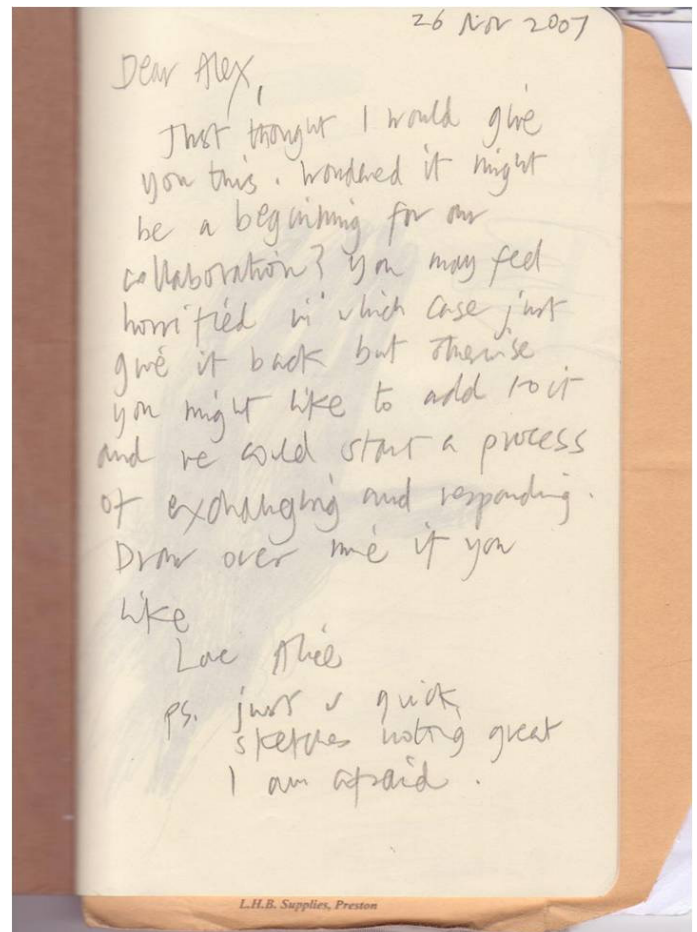 26 Nov 2007
Dear Alex,
Just thought I would give
you this. Wondered it might
be a beginning for our
collaboration? You may feel
horrified in which case just
give it back but otherwise
you might like to add to it
and we could start a process
of exchanging and responding.
Draw over mine if you
like
Love
ps. just v quick
sketches nothing great
I am afraid.
L.H.B. Supplies, Preston